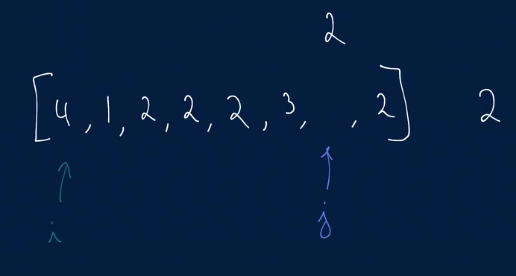 2
[4, 1, 2, 2, 2, 3, , 2] 2
i j